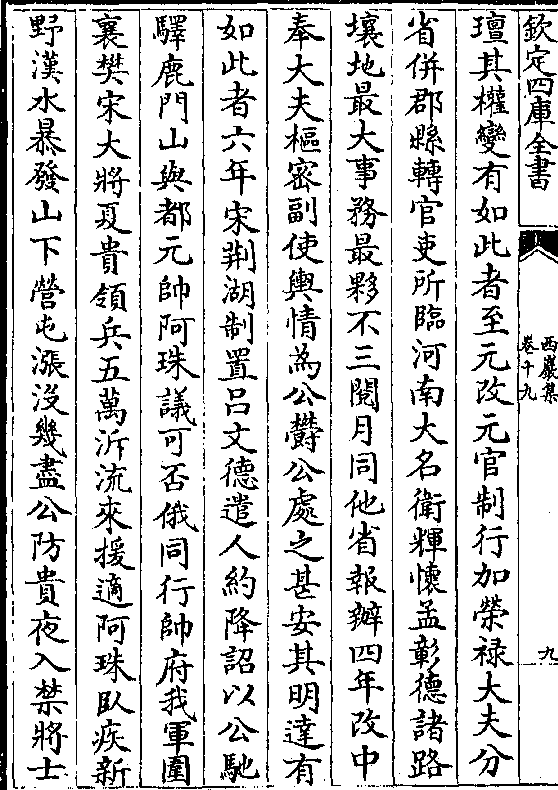 欽定四庫全書
西巖集
卷十九
九
璮其權變有如此者至元改元官制行加榮祿大夫分
省併郡縣轉官吏所臨河南大名衛輝懷孟彰德諸路
壤地最大事務最夥不三閱月同他省報辦四年改中
奉大夫樞密副使輿情為公欝公處之甚安其明達有
如此者六年宋荆湖制置吕文德遣人約降詔以公馳
驛鹿門山與都元帥阿珠議可否俄同行帥府我軍圍
襄樊宋大將夏貴領兵五萬泝流來援適阿珠臥疾新
野漢水暴發山下營屯漲沒幾盡公防貴夜入禁將士